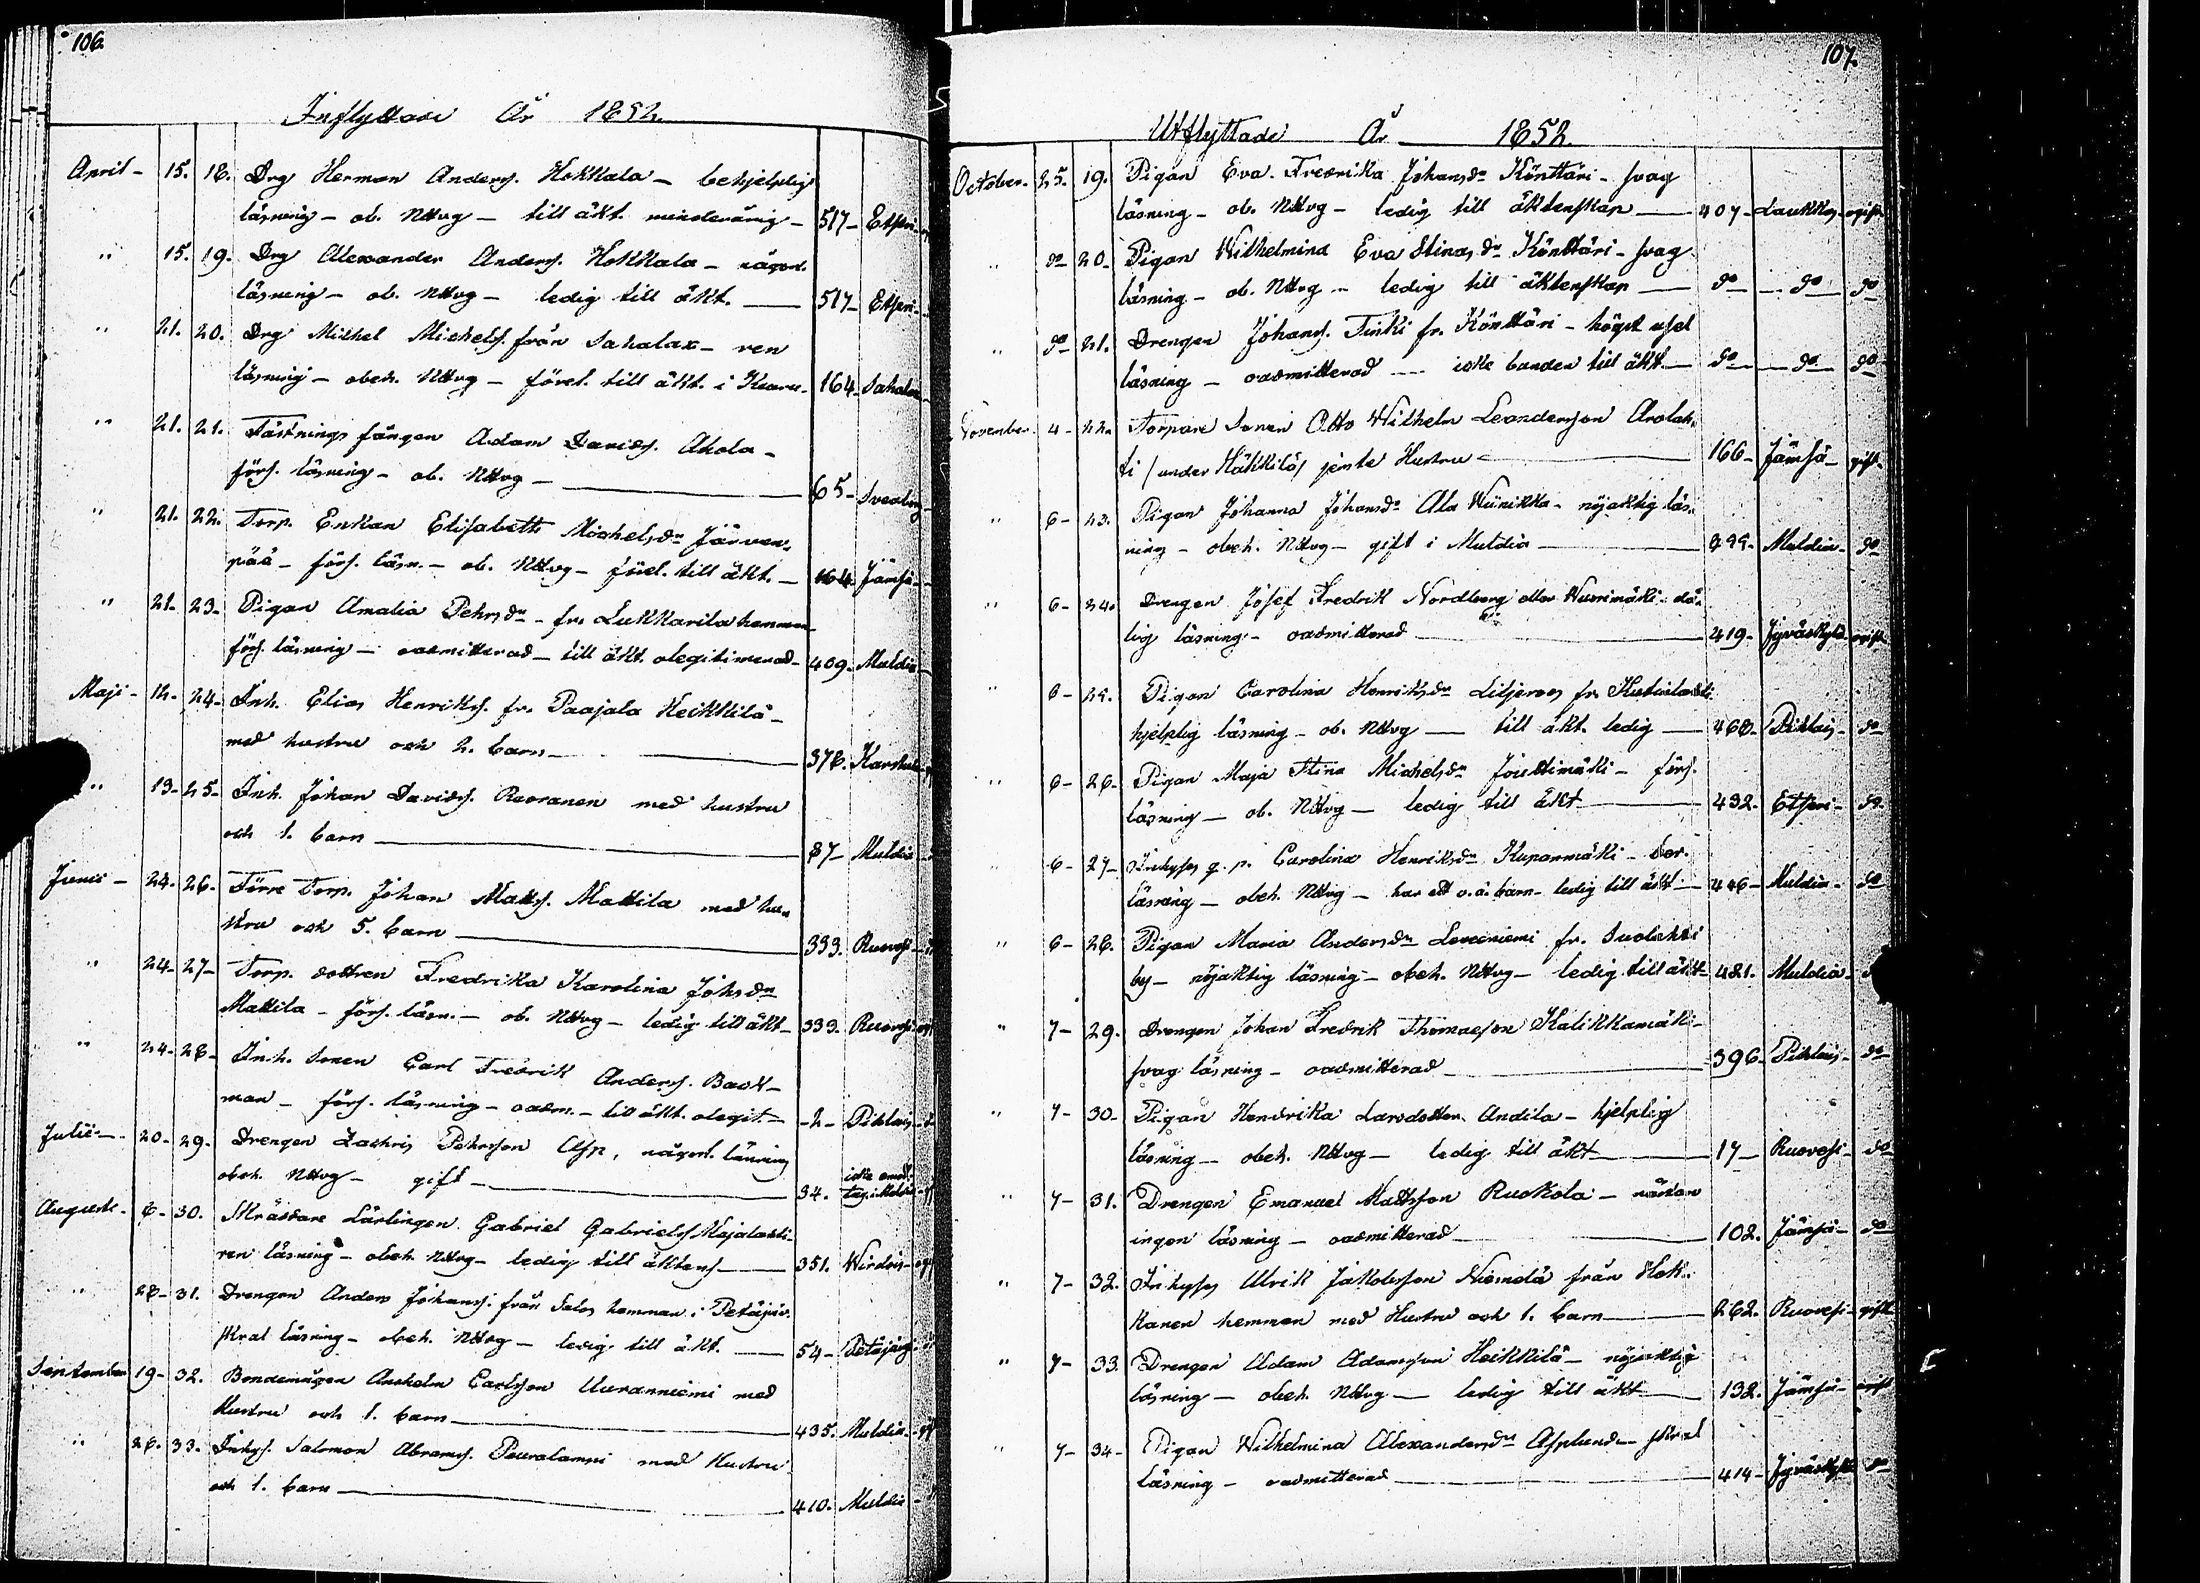 106.
Inflyttade År 1852.
April - 15. 18. Drg Herman Anders. Hokkala - behjelplig
läsning - ob. Nttvg - till äkt. minderårig - 517 - Etseri -
" 15. 19. Drg Alexander Anders. Hokkala - någorl.
läsning - ob. Nttvg - ledig till äkt. 517 - Etseri -
" 21. 20. Drg Michel Michels. från Sahalax - ren
läsning - obeh. Nttvg - förel. till äkt. i Keuru - 164 Sahalax
" 21. 21. Fästnings fången Adam Davids. Ahola -
förs. läsning - ob. Nttvg - 65 - Sveaborg
" 21. 22. Torp. Enkan Elisabeth Michelsdr Järven-
pää - förs. läsn. - ob. Nttvg - förel. till äkt. - 164 Jämsä -
" 21. 23. Pigan Amalia Pehrsdr - fr. Lukkarila hemman
förs. läsning - oadmitterad - till äkt. olegitimerad - 409. Muldia -
Maji - 12. 24. Inh. Elias Henriks. fr. Paajala Heikkilä -
med hustru och 2. barn - 378. Karstula
" 13 - 25 - Inh. Johan Davids. Rooranen med hustru
och 1. barn 87 - Muldia
Junii - 24. 26. Förre Torp. Johan Matts. Mattila med hu-
stru och 5. barn 333. Ruovesi -
" 24 - 27 - Torp. dottren Fredrika Karolina Johsdr
Mattila - förs. läsn. - ob. Nttvg - ledig till äkt - 333. Ruovesi -
" 24 - 28 - Inh. Sonen Carl Fredrik Anders. Back-
man - förs. läsning - oadm. - till äkt. olegit. - 2 - Pihlais -
Julii - 20 - 29. Drengen Zachris Pehrsson Asp, någorl. läsning
obeh. Nttvg - gift - 34. icke emot tag. i Muldia
Augusti - 6 - 30. Skräddare Lärlingen Gabriel Gabriels. Majalahti -
ren läsning - obeh. Nttvg - ledig till äktens. 351. Wirdois -
" 28 - 31. Drengen Anders Johans. från Salos hemman i Petäjäv.
skral läsning - obeh. Nttvg - ledig till äkt. 54 - Petäjävj -
September 19 - 32. Bondemågen Anshelm Carlsson Uuranniemi med
Hustru och 1. barn - 435. Muldia -
" 26. 33. Inhys. Salomon Abrams. Peuralamni med Hustru
och 1. barn - 410. Muldia -
107.
Utflyttade År 1852.
October - 25. 19. Pigan Eva Fredrika Johansdr Könttäri - svag
läsning - ob. Nttvg - ledig till äktenskap - 407 - Laukkas - ogift
" do 20 - Pigan Wilhelmina Eva Stinas dr Könttäri - svag
läsning - ob. Nttvg - ledig till äktenskap - do - do - do
" do 21. Drengen Johans. Tinki fr. Könttäri - högst usel
läsning - oadmitterad - icke bunden till äkt - do - do - do
November 4 - 22. Torpare Sonen Otto Wilhelm Leandersson Arolah-
ti / under Häkkilä / jemte Hustru - 166 - Jämsä - gift -
" 6 - 23. Pigan Johanna Johansdr Ala Wiinikka - nöjaktig läs-
ning - obeh. Nttvg - gift i Muldia - 399. Muldia - do
" 6 - 24. Drengen Josef Fredrik Nordberg eller Wuorimäki - då-
lig läsning - oadmitterad - 419. Jyväskylä ogift
" 6 - 25. Pigan Carolina Henriksdr Liljeroos fr. Hutialahti
hjelplig läsning - ob. Nttvg - till äkt. ledig - 460. Pihlais - do
" 6 - 26. Pigan Maja Stina Michelsdr Jouttimäki - förs.
läsning - ob. Nttvg - ledig till äkt - 432. Etseri - do
" 6 - 27 - Inhyses q. p. Carolina Henriksdr Kuparmäki -
läsning - obeh. Nttvg - har ett o. ä. barn - ledig till äkt - 446 - Muldia - do
" 6 - 28. Pigan Maria Andersdr Leveniemi fr. Suolahti
by - nöjaktig läsning - obeh. Nttvg - ledig till äkt - 481. Muldia -
" 7 - 29. Drengen Johan Fredrik Thomasson Kalikkamäki -
svag läsning - oadmitterad 396. Pihlais - do
" 7 - 30. Pigan Hendrika Larsdotter Andila - hjelplig
läsning - obeh. Nttvg - ledig till äkt - 17 - Ruovesi - do
" 7 - 31. Drengen Emanuel Mattsson Ruokola - nästan
ingen läsning - oadmitterad 102. Jämsä - do
" 7 - 32. Inhyses Ulrik Jakobsson Niemelä från Hok-
kanen hemman med Hustru och 1. barn 262. Ruovesi - gift
" 7 - 33. Drengen Adam Adamsson Heikkilä - nöjaktig
läsning - obeh. Nttvg - ledig till äkt 132. Jämsä - ogift
" 7 - 34 - Pigan Wilhelmina Alexandersdr Asplund - skral
läsning - oadmitterad 414 - Jyväskylä do